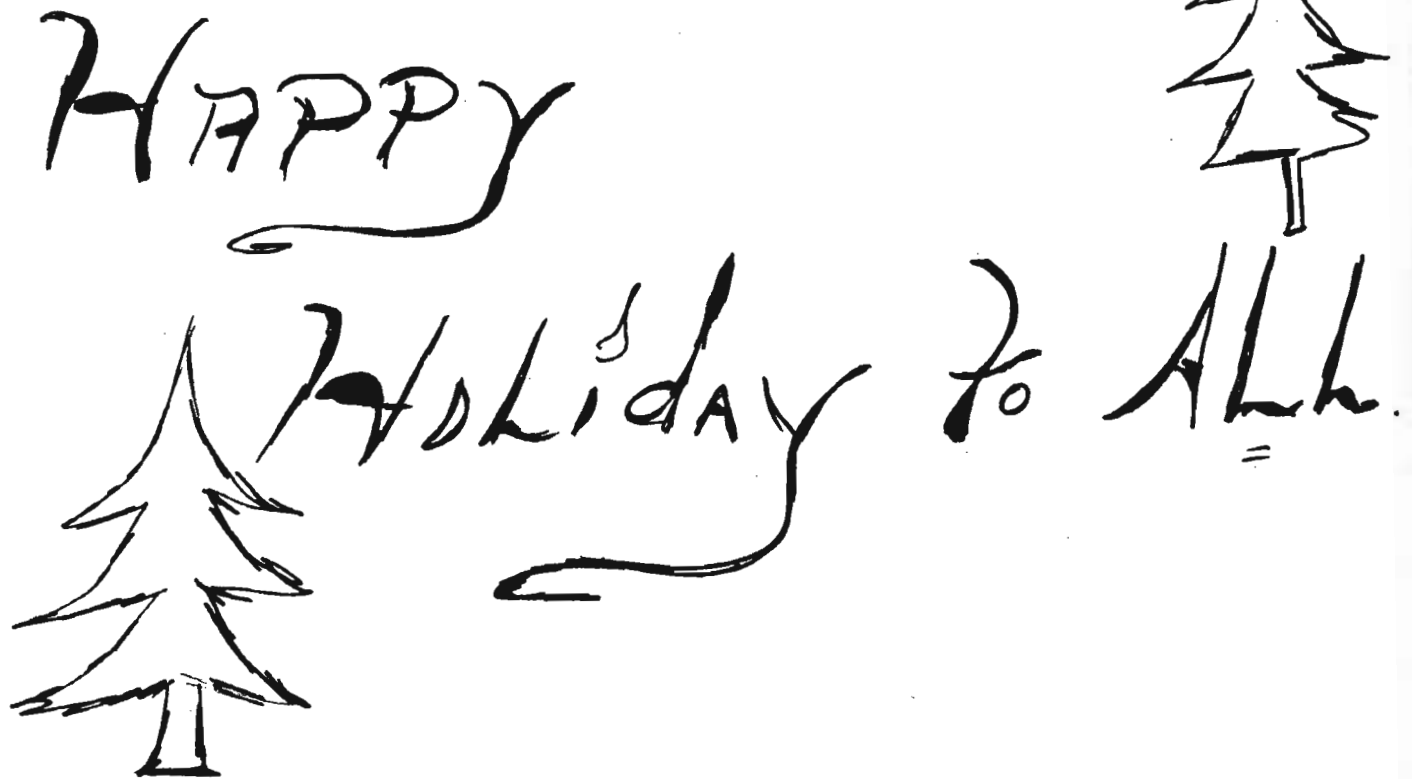 Happy
Holiday To All.